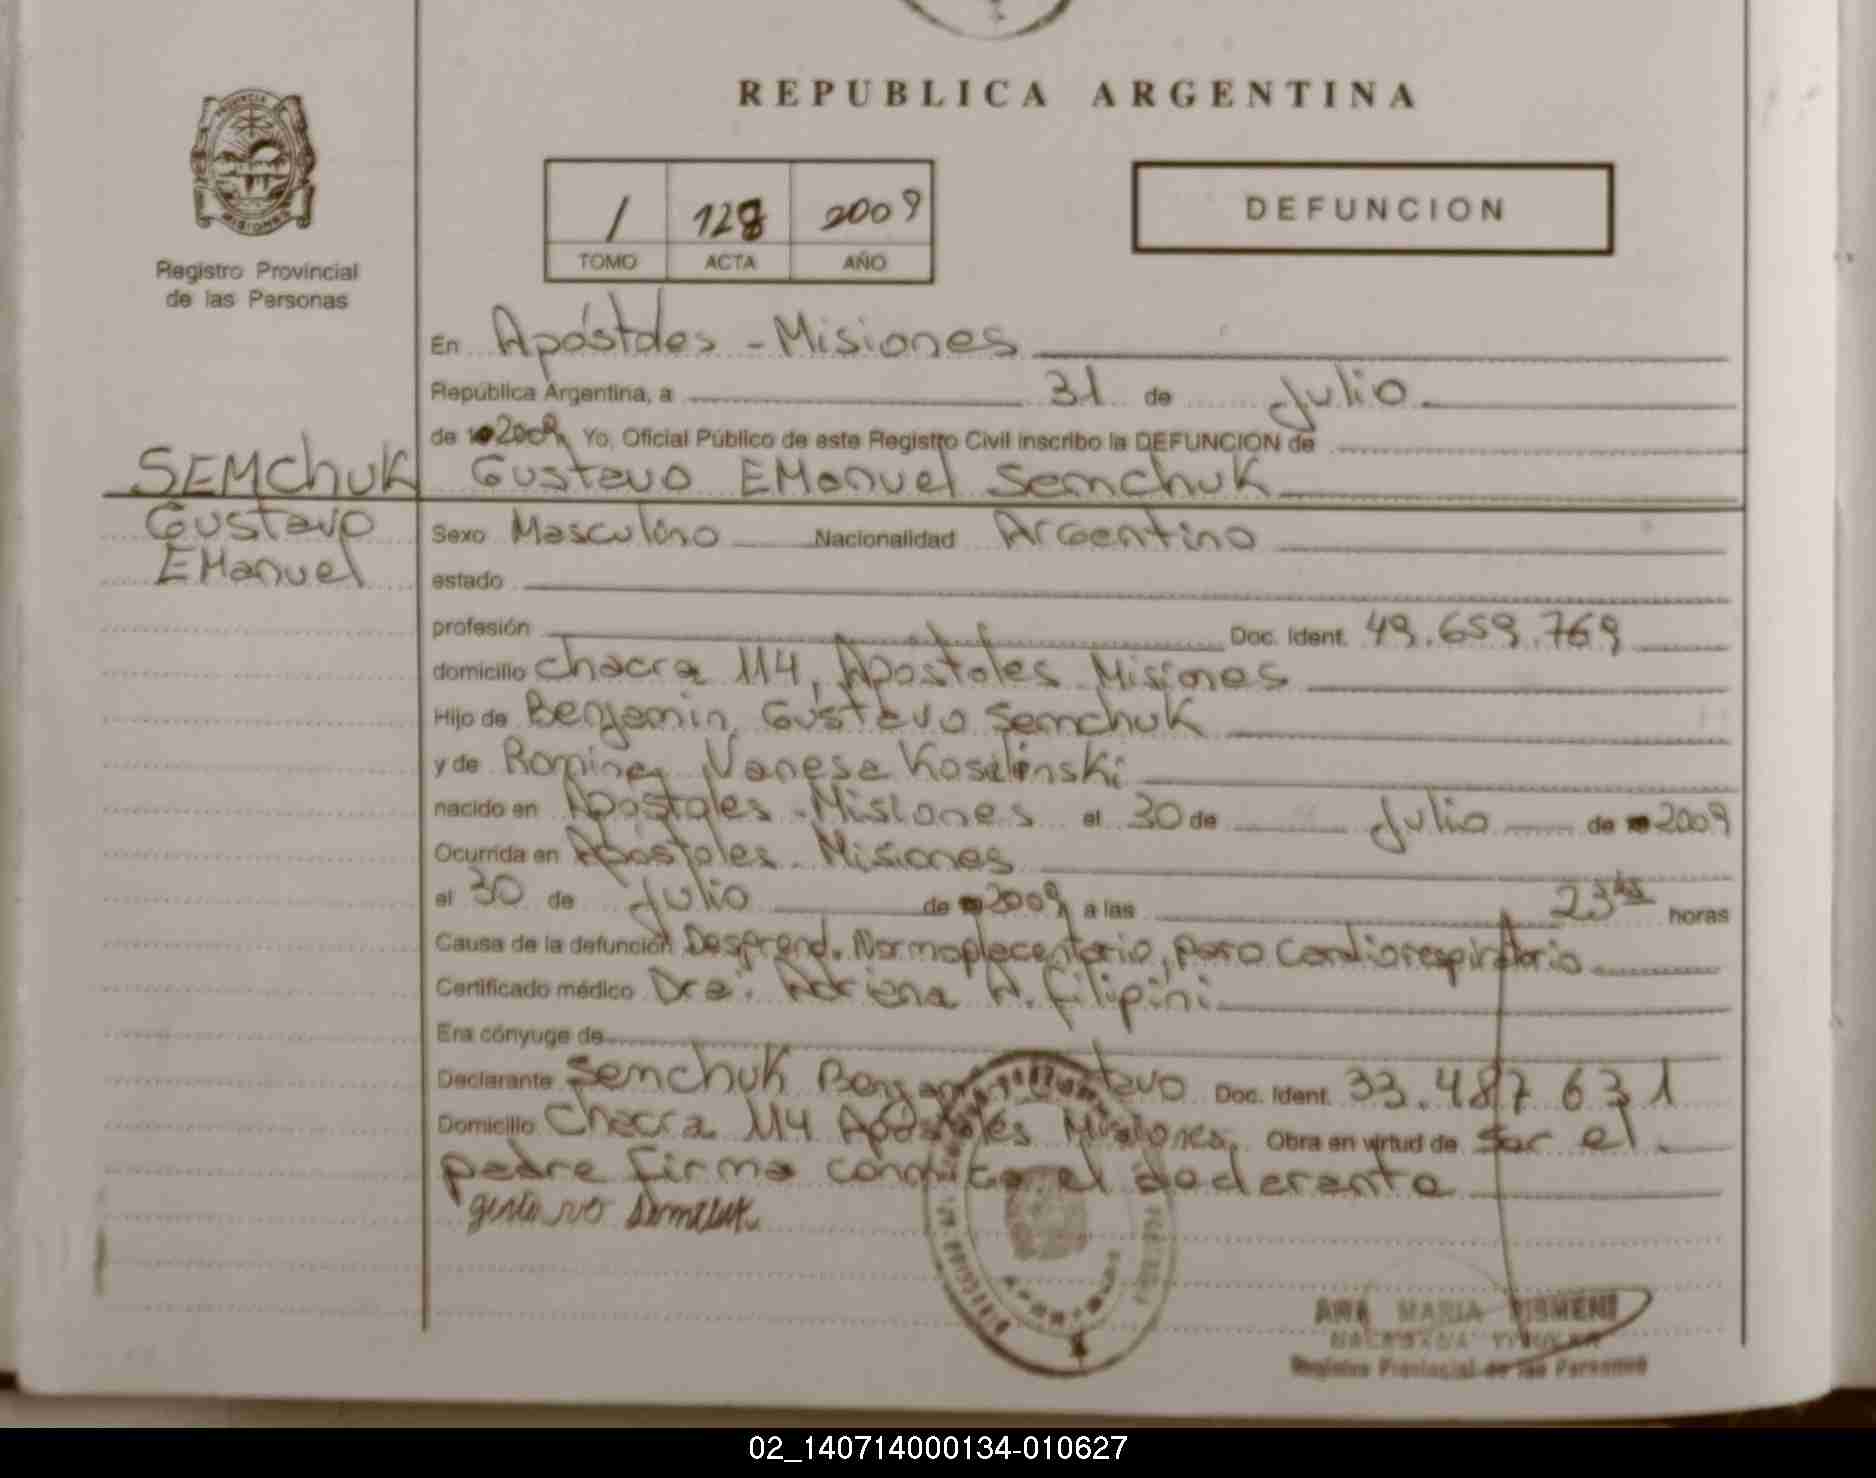 REPUBLICA ARGENTINA
PROVINCIA DE
MISIONES
Registro Provincial
de las Personas
1 128 2009
TOMO ACTA AÑO
DEFUNCION
En Apóstoles - Misiones
República Argentina, a 31 de Julio
de 2009 Yo, Oficial Público de este Registro Civil inscribo la DEFUNCION de
SEMChuK
Gustavo
EManuel
Gustavo EManuel Semchuk
Sexo Masculino Nacionalidad Argentino
estado
profesión Doc. Ident. 49.659.769
domicilio Chacra 114, Apostoles Misiones
Hijo de Benjamin Gustavo Semchuk
y de Romina Vanesa Koselinski
nacido en Apostoles - Misiones el 30 de Julio de 2009
Ocurrida en Apostoles - Misiones
el 30 de Julio de 2009 a las 23 hs horas
Causa de la defunción Desprend. Normoplacentario, paro Cardiorespiratorio
Certificado médico Dra. Adriana A. Filipini
Era cónyuge de
Declarante Semchuk Gustavo Doc. Ident. 33.487 631
Domicilio Chacra 114 Apostoles Misiones. Obra en virtud de Ser el
padre firma conmigo el declarante
ANA MARIA
Registro Provincial de las Personas
02_140714000134-010627